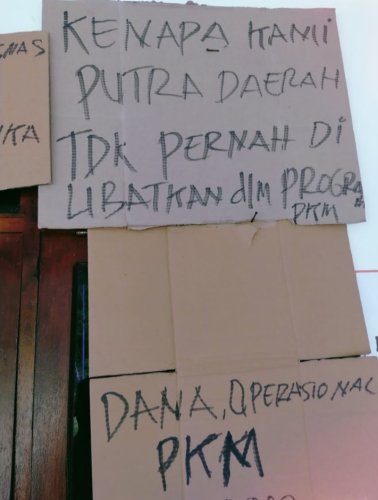 KENAPA KAMI
PUTRA DAERAH
TDK PERNAH DI
LIBATKAN dlm PROGRAM
PKM
NKA
DANA, OPERASIONAL
PKM